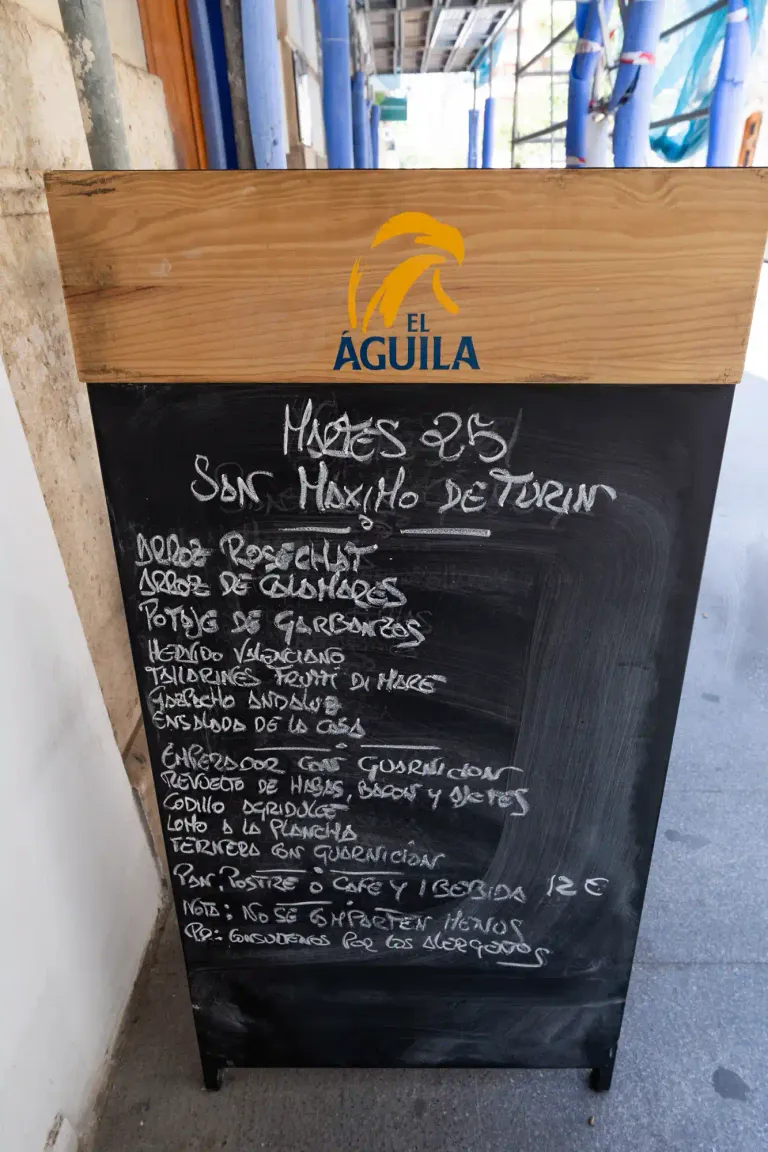 EL
ÁGUILA
MARTES 25
SAN MAXIMO DE TURIN
ARROZ ROSECHAT
ARROZ DE CALAMARES
POTAJE DE GARBANZOS
HERVIDO VALENCIANO
TALLARINES FRUTTI DI MARE
GAZPACHO ANDALUZ
ENSALADA DE LA CASA
EMPERADOR CON GUARNICION
REVUELTO DE HABAS, BACON Y AJETES
CODILLO AGRIDULCE
LOMO A LA PLANCHA
TERNERA CON GUARNICIÓN
PAN, POSTRE O CAFE Y 1 BEBIDA 12 €
NOTA: NO SE COMPARTEN MENUS
CONSULTENOS POR LOS ALERGENOS